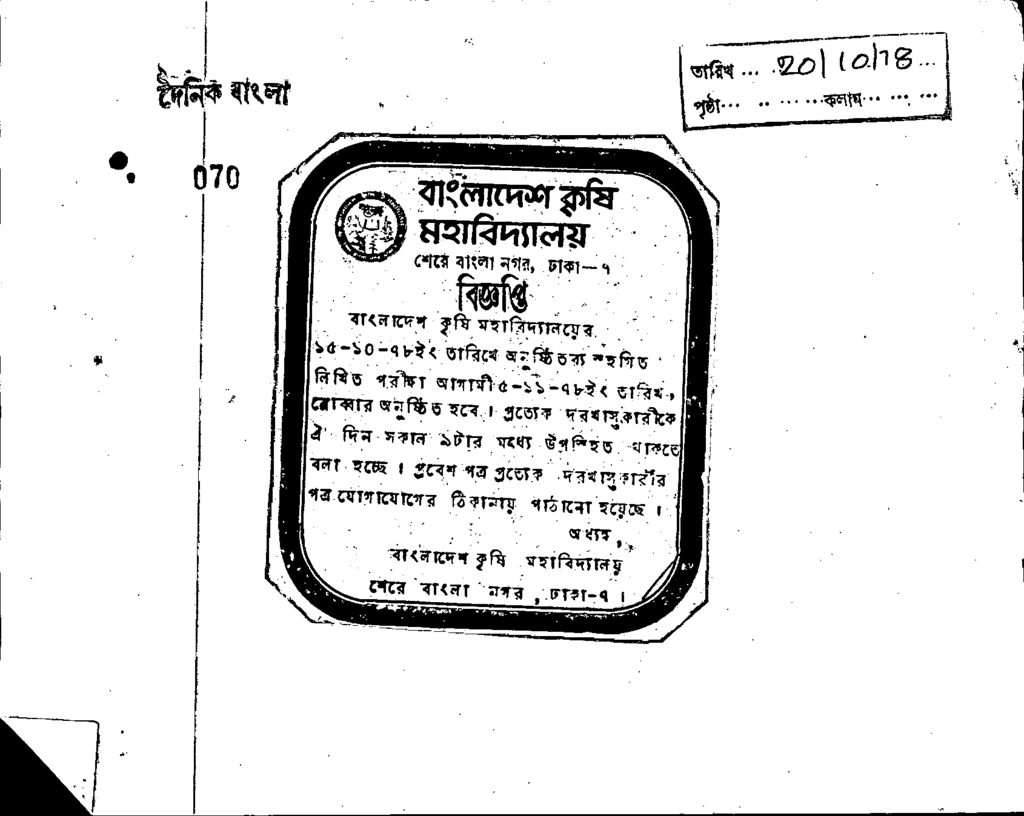 দৈনিক বাংলা
তারিখ ... 20/10/78 ...
পৃষ্ঠা... .. ... ...কলাম... ... ...
070
বাংলাদেশ কৃষি
মহাবিদ্যালয়
শেরে বাংলা নগর, ঢাকা—৭
বিজ্ঞপ্তি
বাংলাদেশ কৃষি মহাবিদ্যালয়ের
১৫-১০-৭৮ইং তারিখে অনুষ্ঠিতব্য স্হগিত
লিখিত পরীক্ষা আগামী ৫-১১-৭৮ইং তারিখ,
রোববার অনুষ্ঠিত হবে । প্রত্যেক দরখাস্তকারীকে
ঐ দিন সকাল ৯টার মধ্যে উপস্হিত থাকতে
বলা হচ্ছে । প্রবেশ পত্র প্রত্যেক দরখাস্তকারীর
পত্র যোগাযোগের ঠিকানায় পাঠানো হয়েছে ।
অধ্যক্ষ,
বাংলাদেশ কৃষি মহাবিদ্যালয়
শেরে বাংলা নগর, ঢাকা-৭ ।